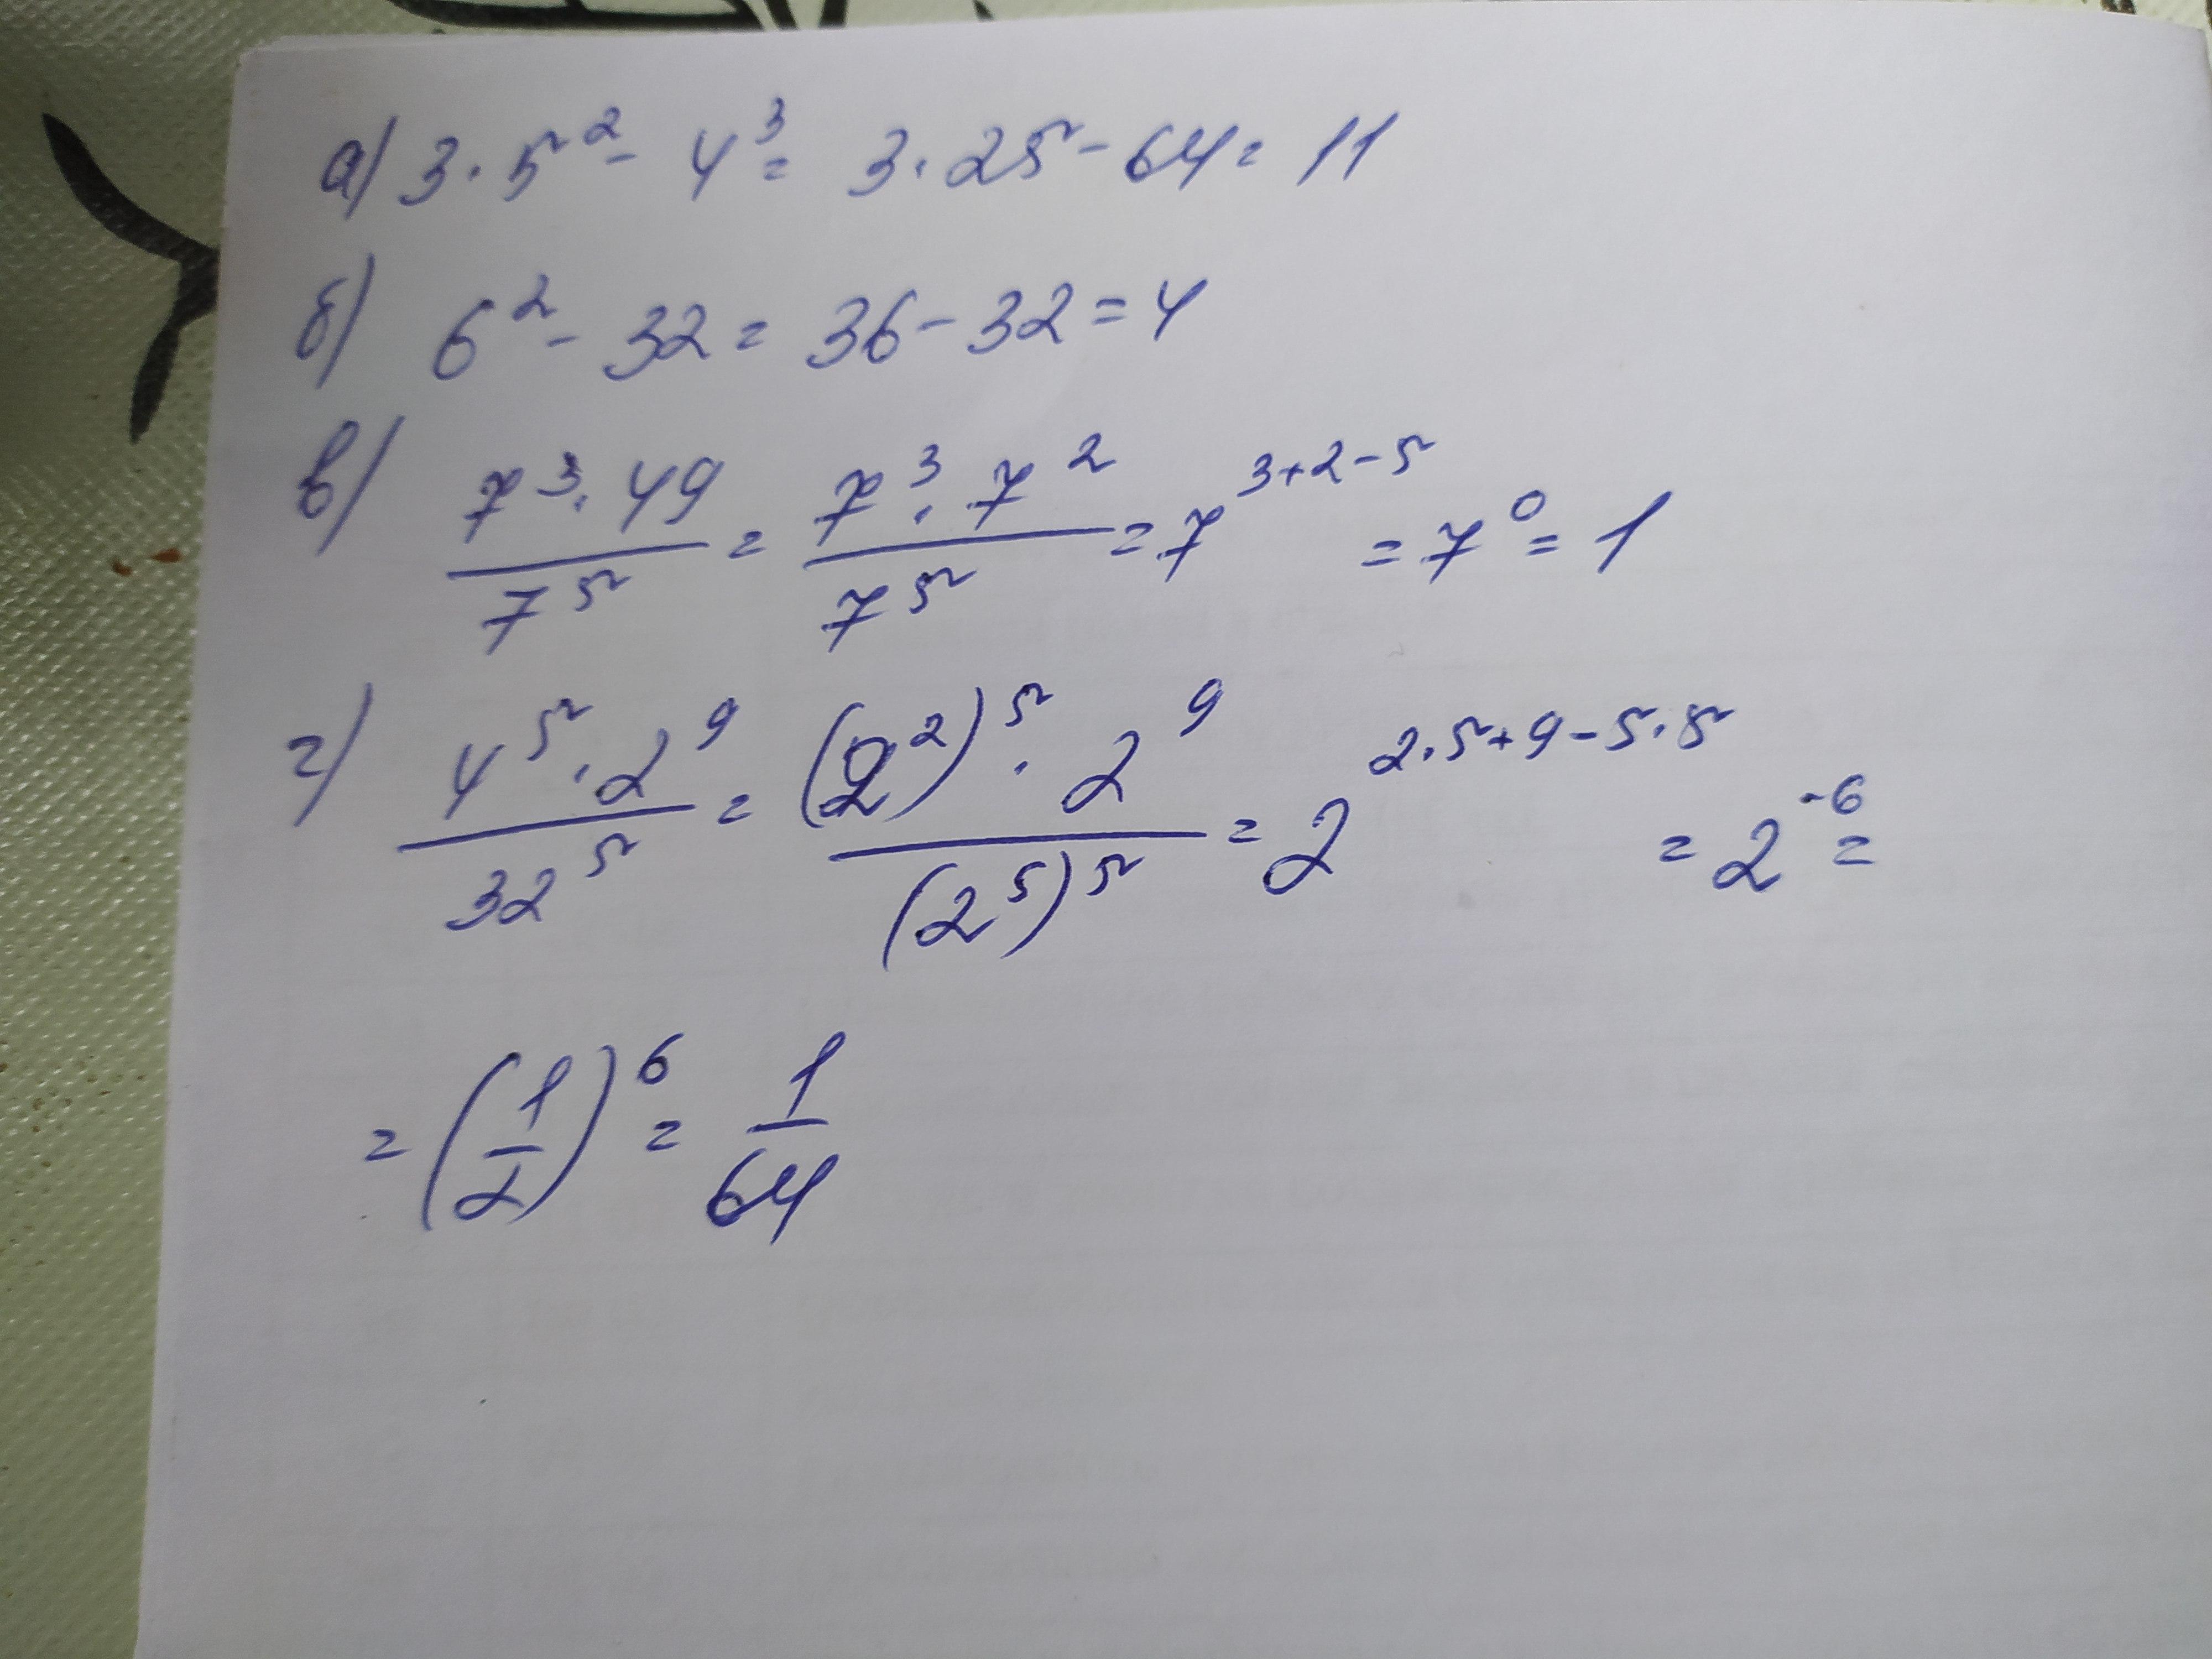 а) 3 · 5² - 4³ = 3 · 25 - 64 = 11
б) 6² - 32 = 36 - 32 = 4
в) \frac{7³ · 49}{7⁵} = \frac{7³ · 7²}{7⁵} = 7^{3+2-5} = 7⁰ = 1
г) \frac{4⁵ · 2⁹}{32⁵} = \frac{(2²)⁵ · 2⁹}{(2⁵)⁵} = 2^{2·5+9-5·5} = 2^{-6} =
= (\frac{1}{2})⁶ = \frac{1}{64}